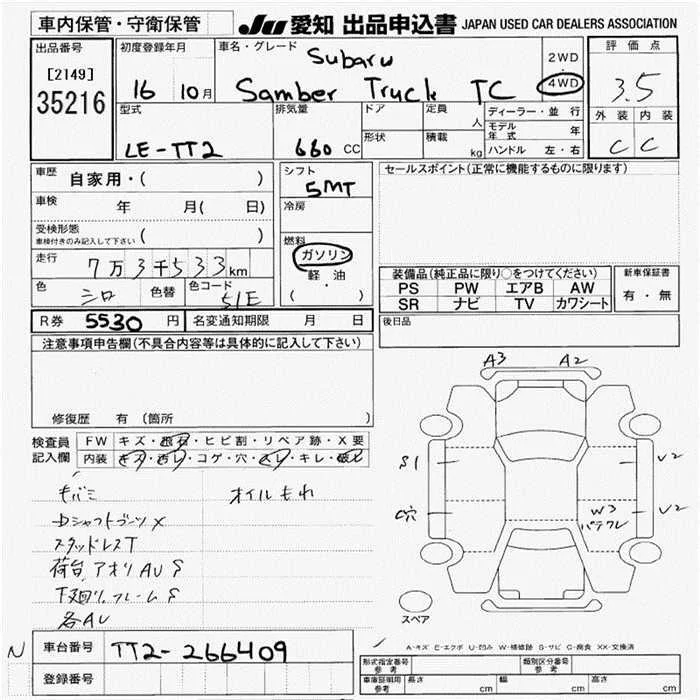 車内保管・守衛保管
JU 愛知 出品申込書 JAPAN USED CAR DEALERS ASSOCIATION
出品番号
[2149]
35216
初度登録年月
16 10月
車名・グレード
Subaru
Samber Truck TC
2WD
・
4WD
評価点
3.5
外装 内装
C C
型式
LE-TT2
排気量
660 CC
ドア
形状
定員
人
積載
kg
ディーラー・並行
モデル年式 年
ハンドル 左・右
車歴 自家用・( )
車検 年 月( 日)
受検形態
車検付きのみ記入して下さい ( )
走行 7万3千533km
色 シロ 色替 色コード 51E
シフト
5MT
冷房
燃料
ガソリン
軽油
・
( )
セールスポイント(正常に機能するものに限ります)
装備品(純正品に限り○をつけてください)
PS PW エアB AW
SR ナビ TV カワシート
新車保証書
有・無
R券 5530円 名変通知期限 月 日
後日品
注意事項申告欄(不具合内容等は具体的に記入して下さい)
修復歴 有 (箇所 )
検査員記入欄
FW キズ・飛石・ヒビ割・リペア跡・X要
内装 キズ・汚レ・コゲ・穴・スレ・キレ・破レ
モバミ オイルもれ
Dシャフトブーツ×
スタッドレスT
荷台 アオリ AU S
下廻り、フレームS
各AU
A3 A2
S1 U2
穴 W3 U2
パテワレ
スペア
A-キズ E-エクボ U-凹み W-補修跡 S-サビ C-腐食 XX-交換済
N
車台番号 TT2-266409
登録番号
形式指定番号 参考
類別区分番号 参考
車庫証明用 参考 長さ cm 幅 cm 高さ cm